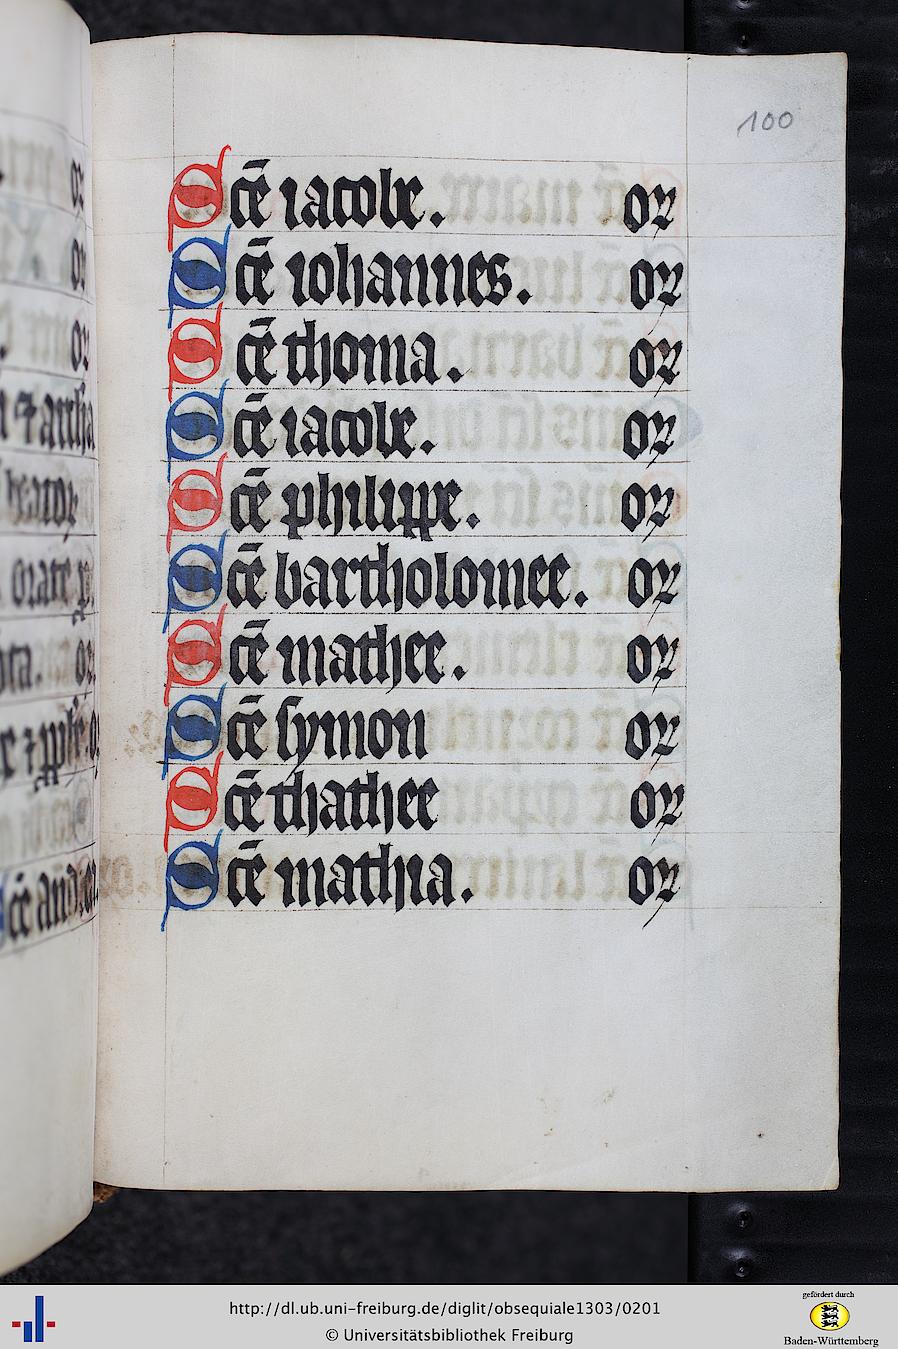 100
Scē iacobe. or
Scē iohannes. or
Scē thoma. or
Scē iacobe. or
Scē philippe. or
Scē bartholomee. or
Scē mathee. or
Scē symon or
Scē thathee or
Scē mathia. or
http://dl.ub.uni-freiburg.de/diglit/obsequiale1303/0201
© Universitätsbibliothek Freiburg
gefördert durch
Baden-Württemberg